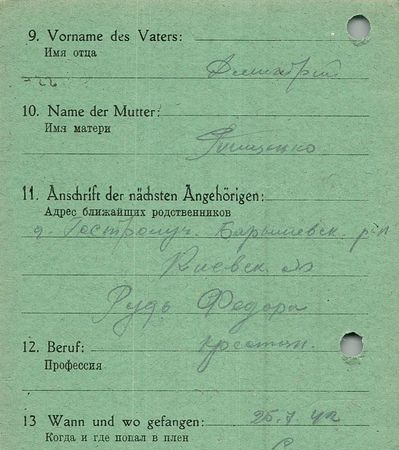 9. Vorname des Vaters:
Имя отца
Дмитрий
10. Name der Mutter:
Имя матери
11. Anschrift der nächsten Angehörigen:
Адрес ближайших родственников
д. Гостролуч. Барышевск. р-н
Киевск.
Рудь Федора
12. Beruf:
Профессия
крестьян.
13 Wann und wo gefangen: 25.7.42
Когда и где попал в плен